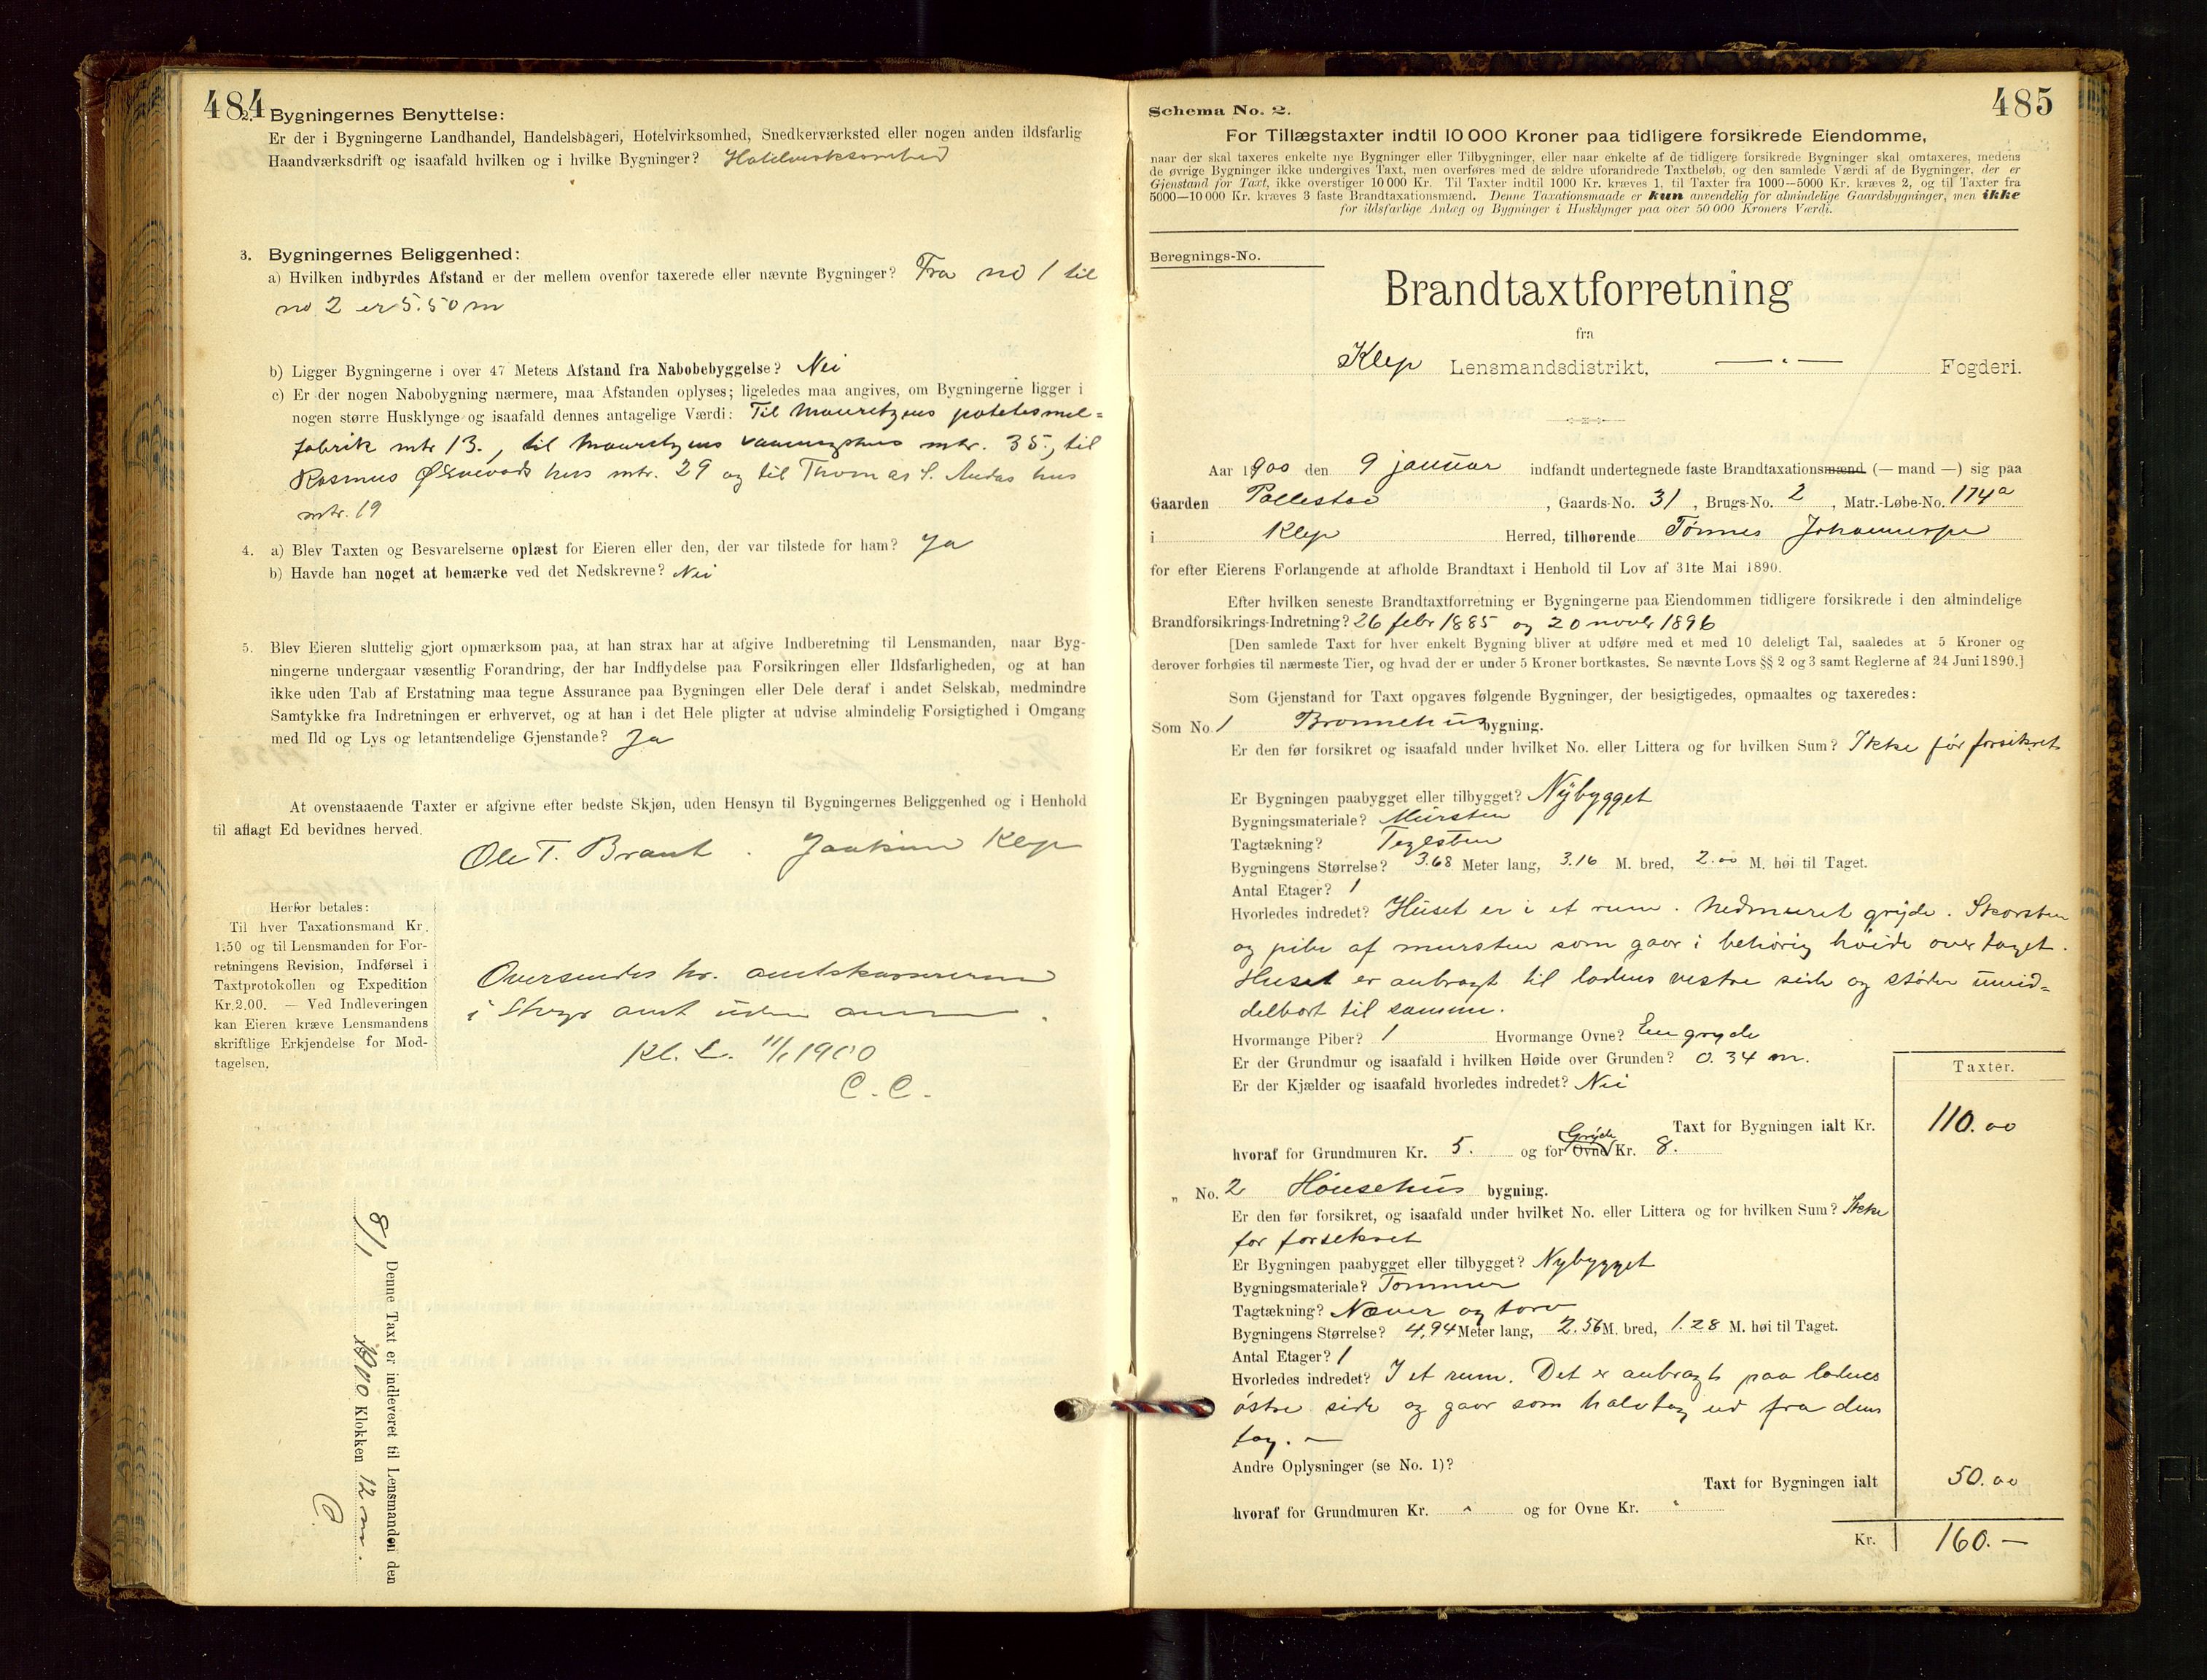 484
2. Bygningernes Benyttelse:
Er der i Bygningerne Landhandel, Handelsbageri, Hotelvirksomhed, Snedkerværksted eller nogen anden ildsfarlig
Haandværksdrift og isaafald hvilken og i hvilke Bygninger? Hotelvirksomhed
3. Bygningernes Beliggenhed:
a) Hvilken indbyrdes Afstand er der mellem ovenfor taxerede eller nævnte Bygninger? Fra no 1 til
no 2 er 5.50 m
b) Ligger Bygningerne i over 47 Meters Afstand fra Nabobebyggelse? Nei
c) Er der nogen Nabobygning nærmere, maa Afstanden oplyses; ligeledes maa angives, om Bygningerne ligger i
nogen større Husklynge og isaafald dennes antagelige Værdi: Til Mauritzens potetesmel=
fabrik mtr 13., til Mauritzens vaaningshus mtr. 35, til
Rasmus hus mtr. 29 og til Thomas S. Andas hus
mtr. 19
4. a) Blev Taxten og Besvarelserne oplæst for Eieren eller den, der var tilstede for ham? Ja
b) Havde han noget at bemærke ved det Nedskrevne? Nei
5. Blev Eieren sluttelig gjort opmærksom paa, at han strax har at afgive Indberetning til Lensmanden, naar Byg-
ningerne undergaar væsentlig Forandring, der har Indflydelse paa Forsikringen eller Ildsfarligheden, og at han
ikke uden Tab af Erstatning maa tegne Assurance paa Bygningen eller Dele deraf i andet Selskab, medmindre
Samtykke fra Indretningen er erhvervet, og at han i det Hele pligter at udvise almindelig Forsigtighed i Omgang
med Ild og Lys og letantændelige Gjenstande? Ja
At ovenstaaende Taxter er afgivne efter bedste Skjøn, uden Hensyn til Bygningernes Beliggenhed og i Henhold
til aflagt Ed bevidnes herved.
Ole T. Braut . Joakim Klep
Herfor betales:
Til hver Taxationsmand Kr.
1.50 og til Lensmanden for For-
retningens Revision, Indførsel i
Taxtprotokollen og Expedition
Kr. 2.00. — Ved Indleveringen
kan Eieren kræve Lensmandens
skriftlige Erkjendelse for Mod-
tagelsen.
Oversendes hr. amtskassereren
i Stvgr amt uden anm.
Kl. L. 11/1 1900
C. C.
Denne Taxt er indleveret til Lensmanden den
8/1 1900 Klokken 12 m.
C.
485
Schema No. 2.
For Tillægstaxter indtil 10 000 Kroner paa tidligere forsikrede Eiendomme,
naar der skal taxeres enkelte nye Bygninger eller Tilbygninger, eller naar enkelte af de tidligere forsikrede Bygninger skal omtaxeres, medens
de øvrige Bygninger ikke undergives Taxt, men overføres med de ældre uforandrede Taxtbeløb, og den samlede Værdi af de Bygninger, der er
Gjenstand for Taxt, ikke overstiger 10 000 Kr. Til Taxter indtil 1000 Kr. kræves 1, til Taxter fra 1000—5000 Kr. kræves 2, og til Taxter fra
5000—10 000 Kr. kræves 3 faste Brandtaxationsmænd. Denne Taxationsmaade er kun anvendelig for almindelige Gaardsbygninger, men ikke
for ildsfarlige Anlæg og Bygninger i Husklynger paa over 50 000 Kroners Værdi.
Beregnings-No.
Brandtaxtforretning
fra
Klep Lensmandsdistrikt, — " — Fogderi.
Aar 1900 den 9 januar indfandt undertegnede faste Brandtaxationsmænd (— mand —) sig paa
Gaarden Pollestad , Gaards-No. 31 , Brugs-No. 2 , Matr.-Løbe-No. 174a
i Klep Herred, tilhørende Tønnes Johannesen
for efter Eierens Forlangende at afholde Brandtaxt i Henhold til Lov af 31te Mai 1890.
Efter hvilken seneste Brandtaxtforretning er Bygningerne paa Eiendommen tidligere forsikrede i den almindelige
Brandforsikrings-Indretning? 26 febr 1885 og 20 novbr 1896
[Den samlede Taxt for hver enkelt Bygning bliver at udføre med et med 10 deleligt Tal, saaledes at 5 Kroner og
derover forhøies til nærmeste Tier, og hvad der er under 5 Kroner bortkastes. Se nævnte Lovs §§ 2 og 3 samt Reglerne af 24 Juni 1890.]
Som Gjenstand for Taxt opgaves følgende Bygninger, der besigtigedes, opmaaltes og taxeredes:
Som No. 1 Brønnehus bygning.
Er den før forsikret og isaafald under hvilket No. eller Littera og for hvilken Sum? Ikke før forsikret
Er Bygningen paabygget eller tilbygget? Nybygget
Bygningsmateriale? Mursten
Tagtækning? Teglsten
Bygningens Størrelse? 3.68 Meter lang, 3.16 M. bred, 2.00 M. høi til Taget.
Antal Etager? 1
Hvorledes indredet? Huset er i et rum. Nedmuret gryde. Skorsten
og pibe af mursten som gaar i behørig høide over taget.
Huset er anbragt til ladens vestre side og støder umid=
delbart til samme.
Hvormange Piber? 1 Hvormange Ovne? En gryde
Er der Grundmur og isaafald i hvilken Høide over Grunden? 0.34 m.
Er der Kjælder og isaafald hvorledes indredet? Nei
Taxter.
Taxt for Bygningen ialt Kr. 110.00
hvoraf for Grundmuren Kr. 5. og for Ovne Gryde Kr. 8.
„ No. 2 Hønsehus bygning.
Er den før forsikret, og isaafald under hvilket No. eller Littera og for hvilken Sum? Ikke
før forsikret
Er Bygningen paabygget eller tilbygget? Nybygget
Bygningsmateriale? Tømmer
Tagtækning? Næver og torv
Bygningens Størrelse? 4.94 Meter lang, 2.56 M. bred, 1.28 M. høi til Taget.
Antal Etager? 1
Hvorledes indredet? I et rum. Det er anbragt paa ladens
østre side og gaar som halvtag ud fra dens
tag. —
Andre Oplysninger (se No. 1)?
Taxt for Bygningen ialt 50.00
hvoraf for Grundmuren Kr. " og for Ovne Kr. "
Kr. 160. —